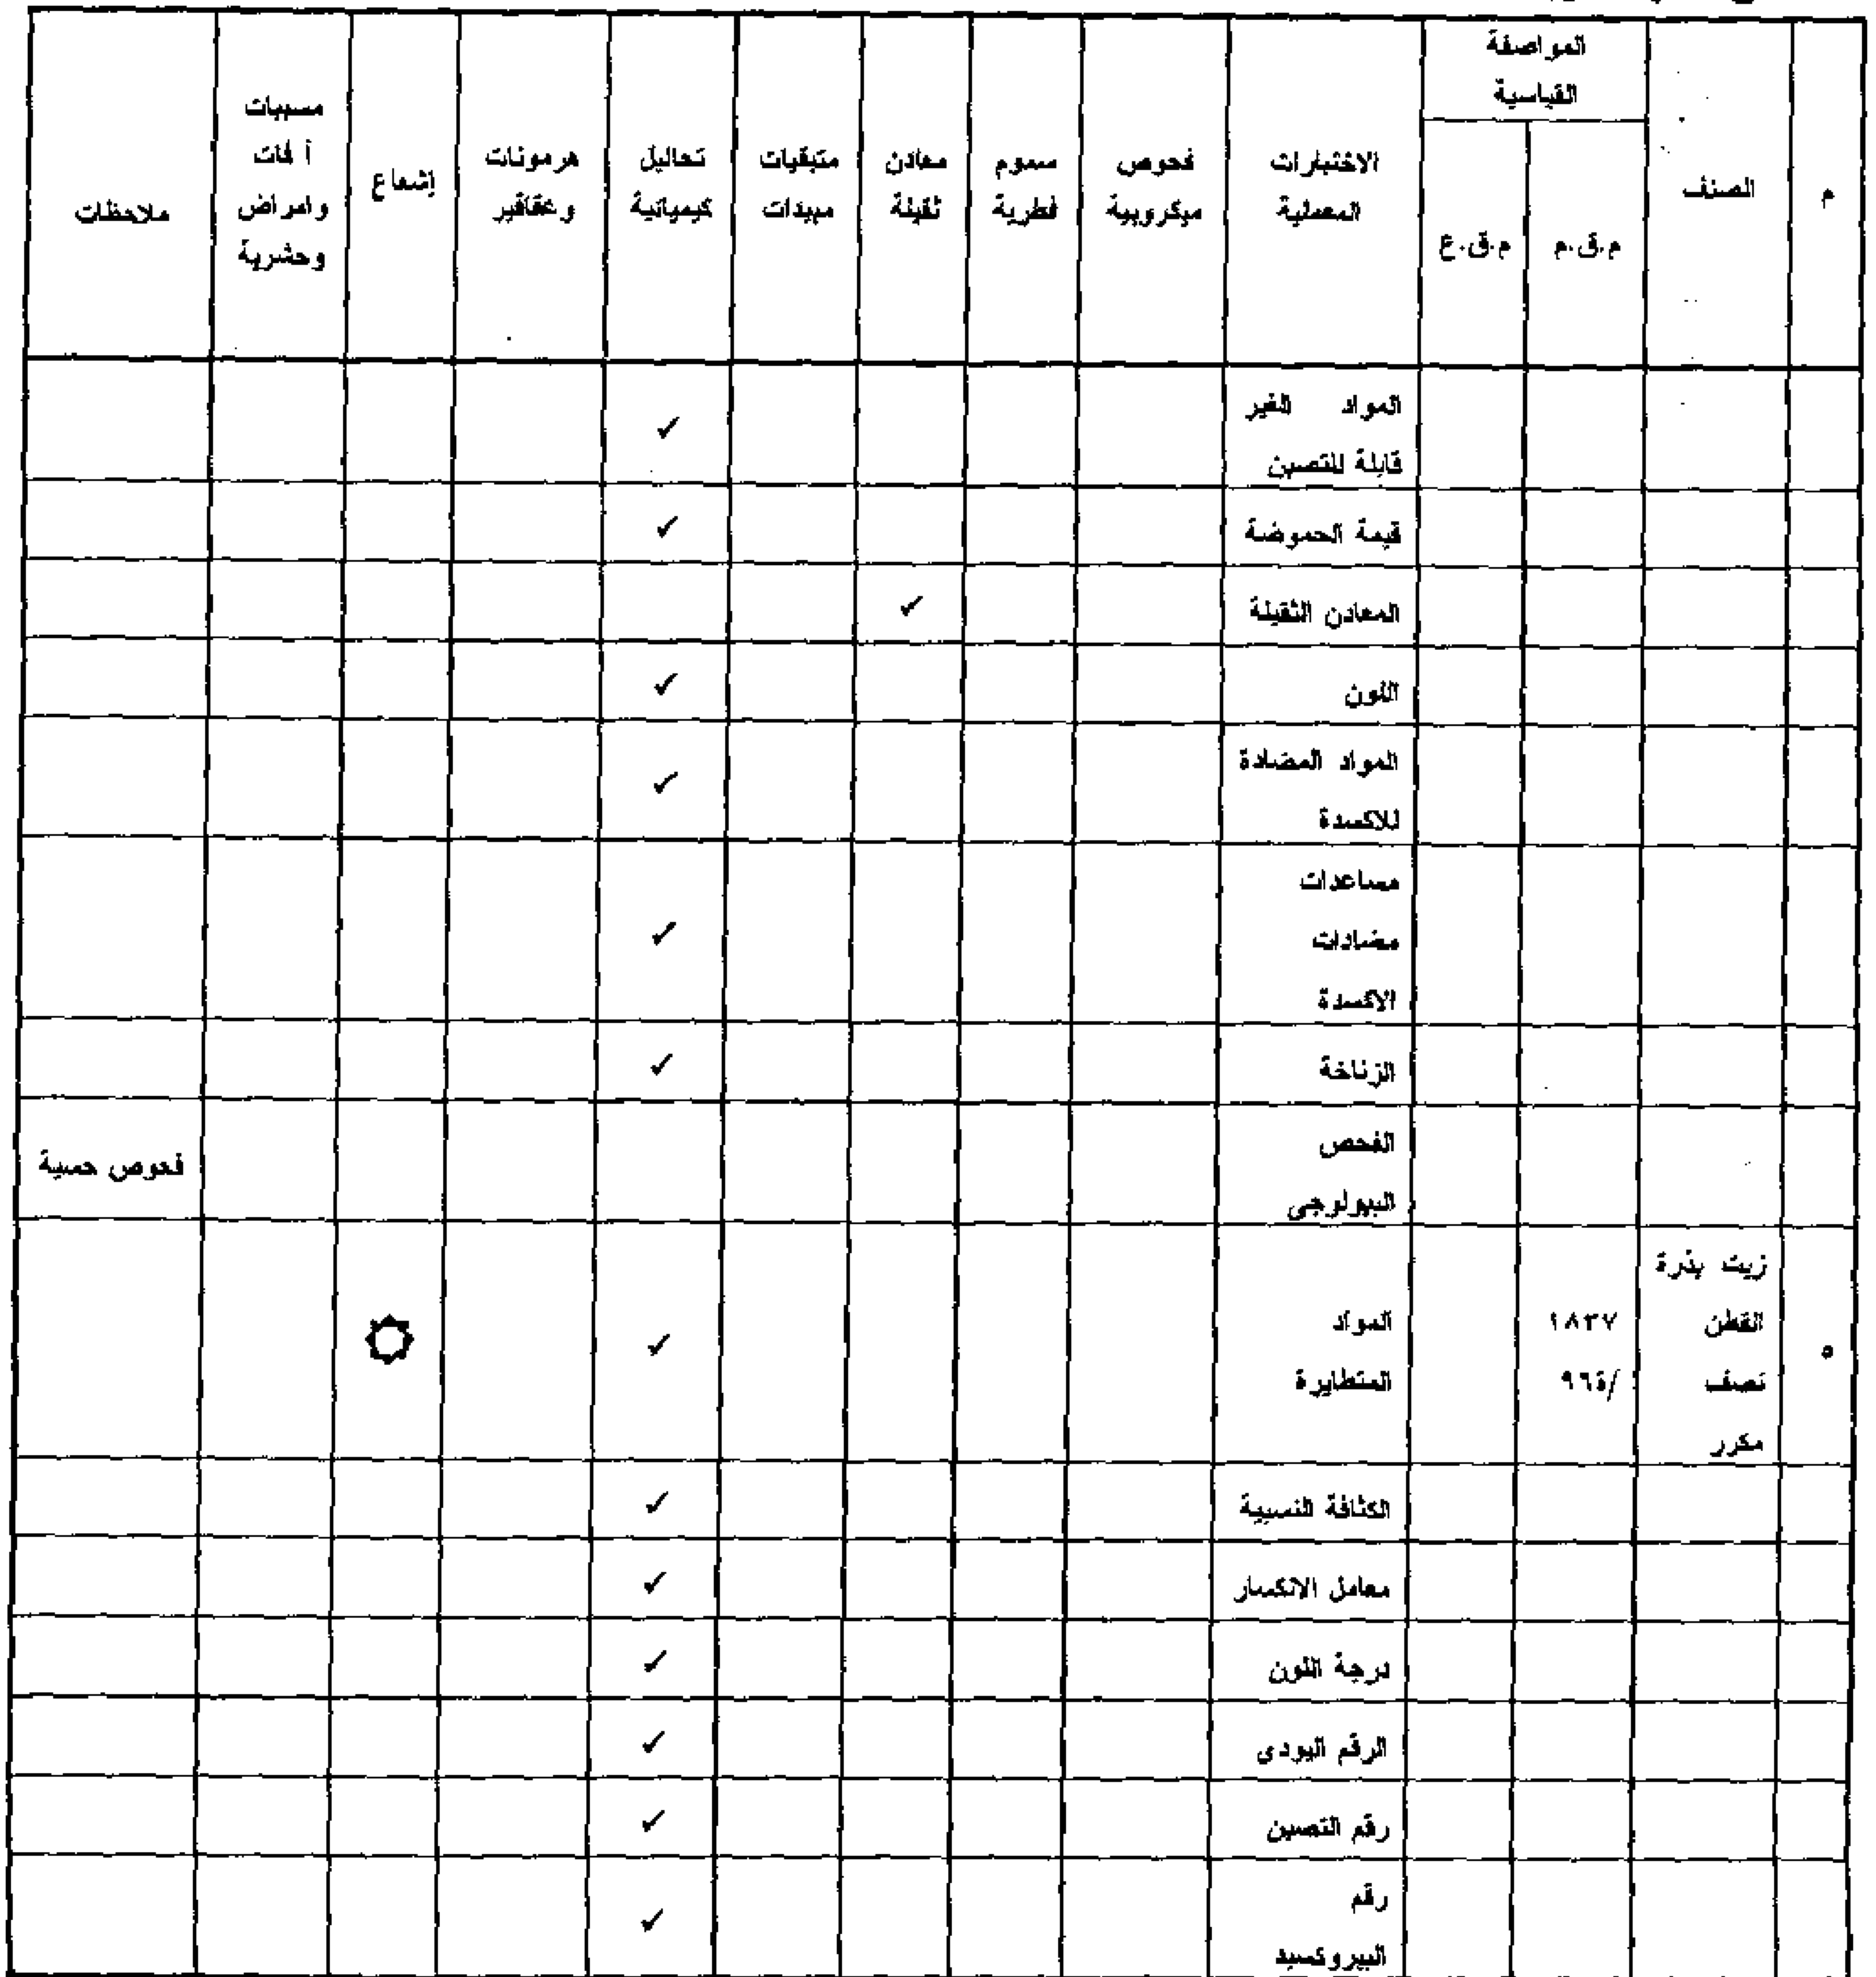 م
الصنف
المواصفة
القياسية
م.ق.م
م.ق.ع
الاختبارات
المعملية
فحوص
ميكروبية
سموم
فطرية
معادن
ثقيلة
متبقيات
مبيدات
تحاليل
كيميائية
هرمونات
وعقاقير
إشعاع
مسببات
أ فات
وامراض
وحشرية
ملاحظات
المواد الغير
قابلة للتصبن
✓
قيمة الحموضة
✓
المعادن الثقيلة
✓
اللون
✓
المواد المضادة
للاكسدة
✓
مساعدات
مضادات
الاكسدة
✓
الزناخة
✓
الفحص
البيولوجى
فحوص حسية
٥
زيت بذرة
القطن
نصف
مكرر
١٨٣٧
المواد
المتطايرة
✓
الكثافة النسبية
✓
معامل الانكسار
✓
درجة اللون
✓
الرقم اليودى
✓
رقم التصبن
✓
رقم
البيروكسيد
✓